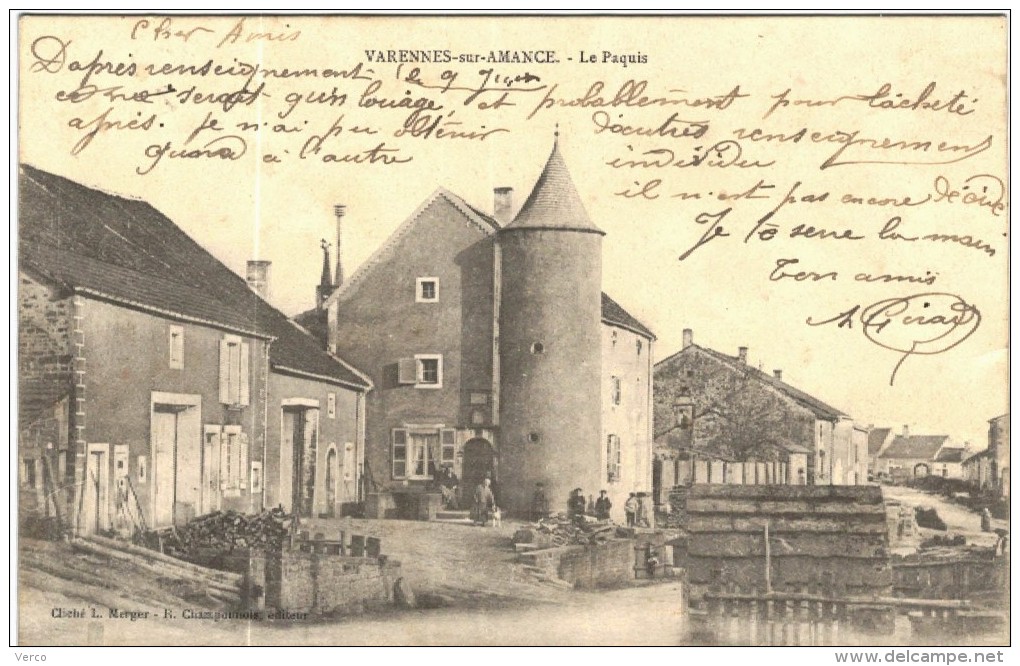 Cher Amis
VARENNES-sur-AMANCE. - Le Paquis
D'après renseignement le 9
ce ne serait qu'un louage, et probablement pour l'acheté
après. Je n'ai pu obténir d'autres renseignements
quand à l'autre individu
il n'est pas encore décidé
Je te serre la main
Ton amis
A Girard
Cliché L. Merger - R. Champonnois, éditeur
Verco
www.delcampe.net